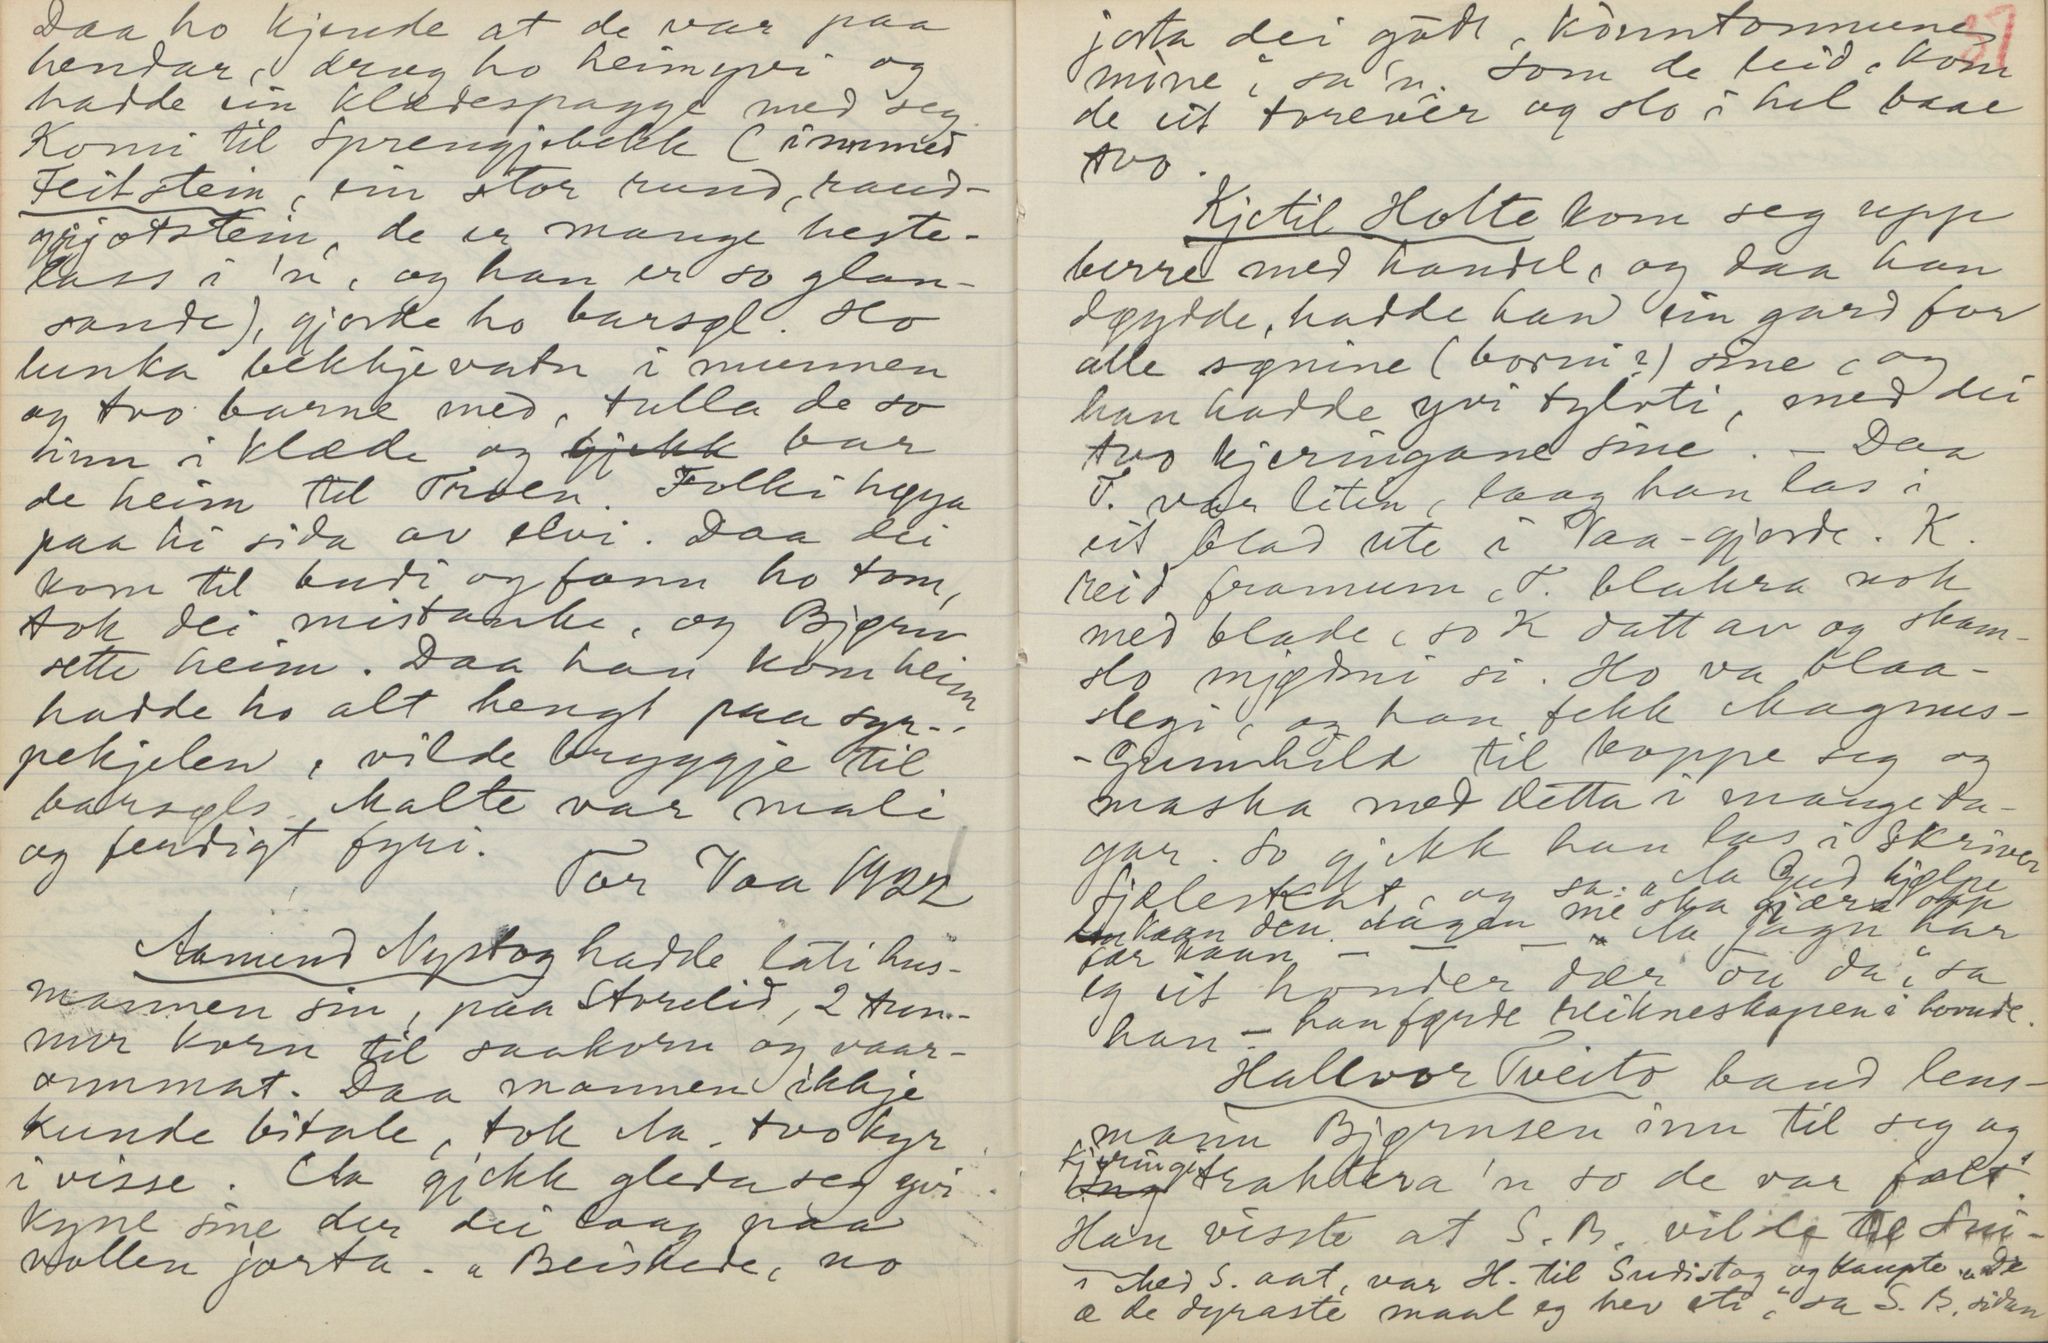 Daa ho kjende at de var paa
hendar, drog ho heimyvi og
hadde ein klædespagge med seg.
Komi til Sprengjebekk (innmed
Feitstein, ein stor rund, raud-
grjotstein, de er mange heste-
lass i 'n, og han er so glan-
sande), gjorde ho barsøl. Ho
lunka bekkjevatn i munnen
og tvo barne med, tulla de so
inn i klæde og gjekk bar
de heim til Troen. Folki høya
paa hi sida av elvi. Daa dei
kom til budi og fann ho tom,
tok dei mistanke, og Bjørn
sette heim. Daa han kom heim
hadde ho alt hengt paa syr-
pekjelen, vilde bryggje til
barsøls. Malte var mali
og ferdigt fyri.
Tor Vaa 1922
Aamund Nystog hadde lati hus-
mannen sin, paa Storelid, 2 tun-
nur korn til saakorn og vaar-
ommat. Daa mannen ikkje
kunde bitale, tok Aa. tvo kyr
i visse. Aa gjekk gleda seg yvi
kyne sine der dei laag paa
vollen jorta. "Beiskede, no
87
jorta dei godt, konntonnune
mine", sa 'n. Som de leid, kom
de eit torevêr og slo i hel baae
tvo.
Kjetil Holte kom seg upp
berre med handel, og daa han
døydde, hadde han ein gard for
alle sønine (borni?) sine, og
han hadde yvi tylvti, med dei
tvo kjeringane sine. - Daa
T. var liten, laag han las i
eit blad ute i Vaa-gjorde. K.
reid framum, T. blakra nok
med blade, so K datt av og skam-
slo mjødmi si. Ho va blaa-
slegi, og han fekk Magnus-
-Gunnhild til koppe seg og
maska med detta i mange da-
gar. So gjekk han las i Skriver
Sjælestat, og sa: "Aa Gud hjølpe
kaan den dagen me ska gjæra opp
før kaan - - - "Aa jagu har
eg eit honder dær òu da", sa
han - han førde reikneskapen i hovude.
Hallvor Tveito baud lens-
mann Bjørnsen inn til seg og
kjeringi traktera 'n so de var fælt.
Han visste at S. B. vilde til Sui-
i Med S. aat, var H. til Sudistog og kaupte. "De
æ de dyraste maal eg hev eti", sa S. B. sidan